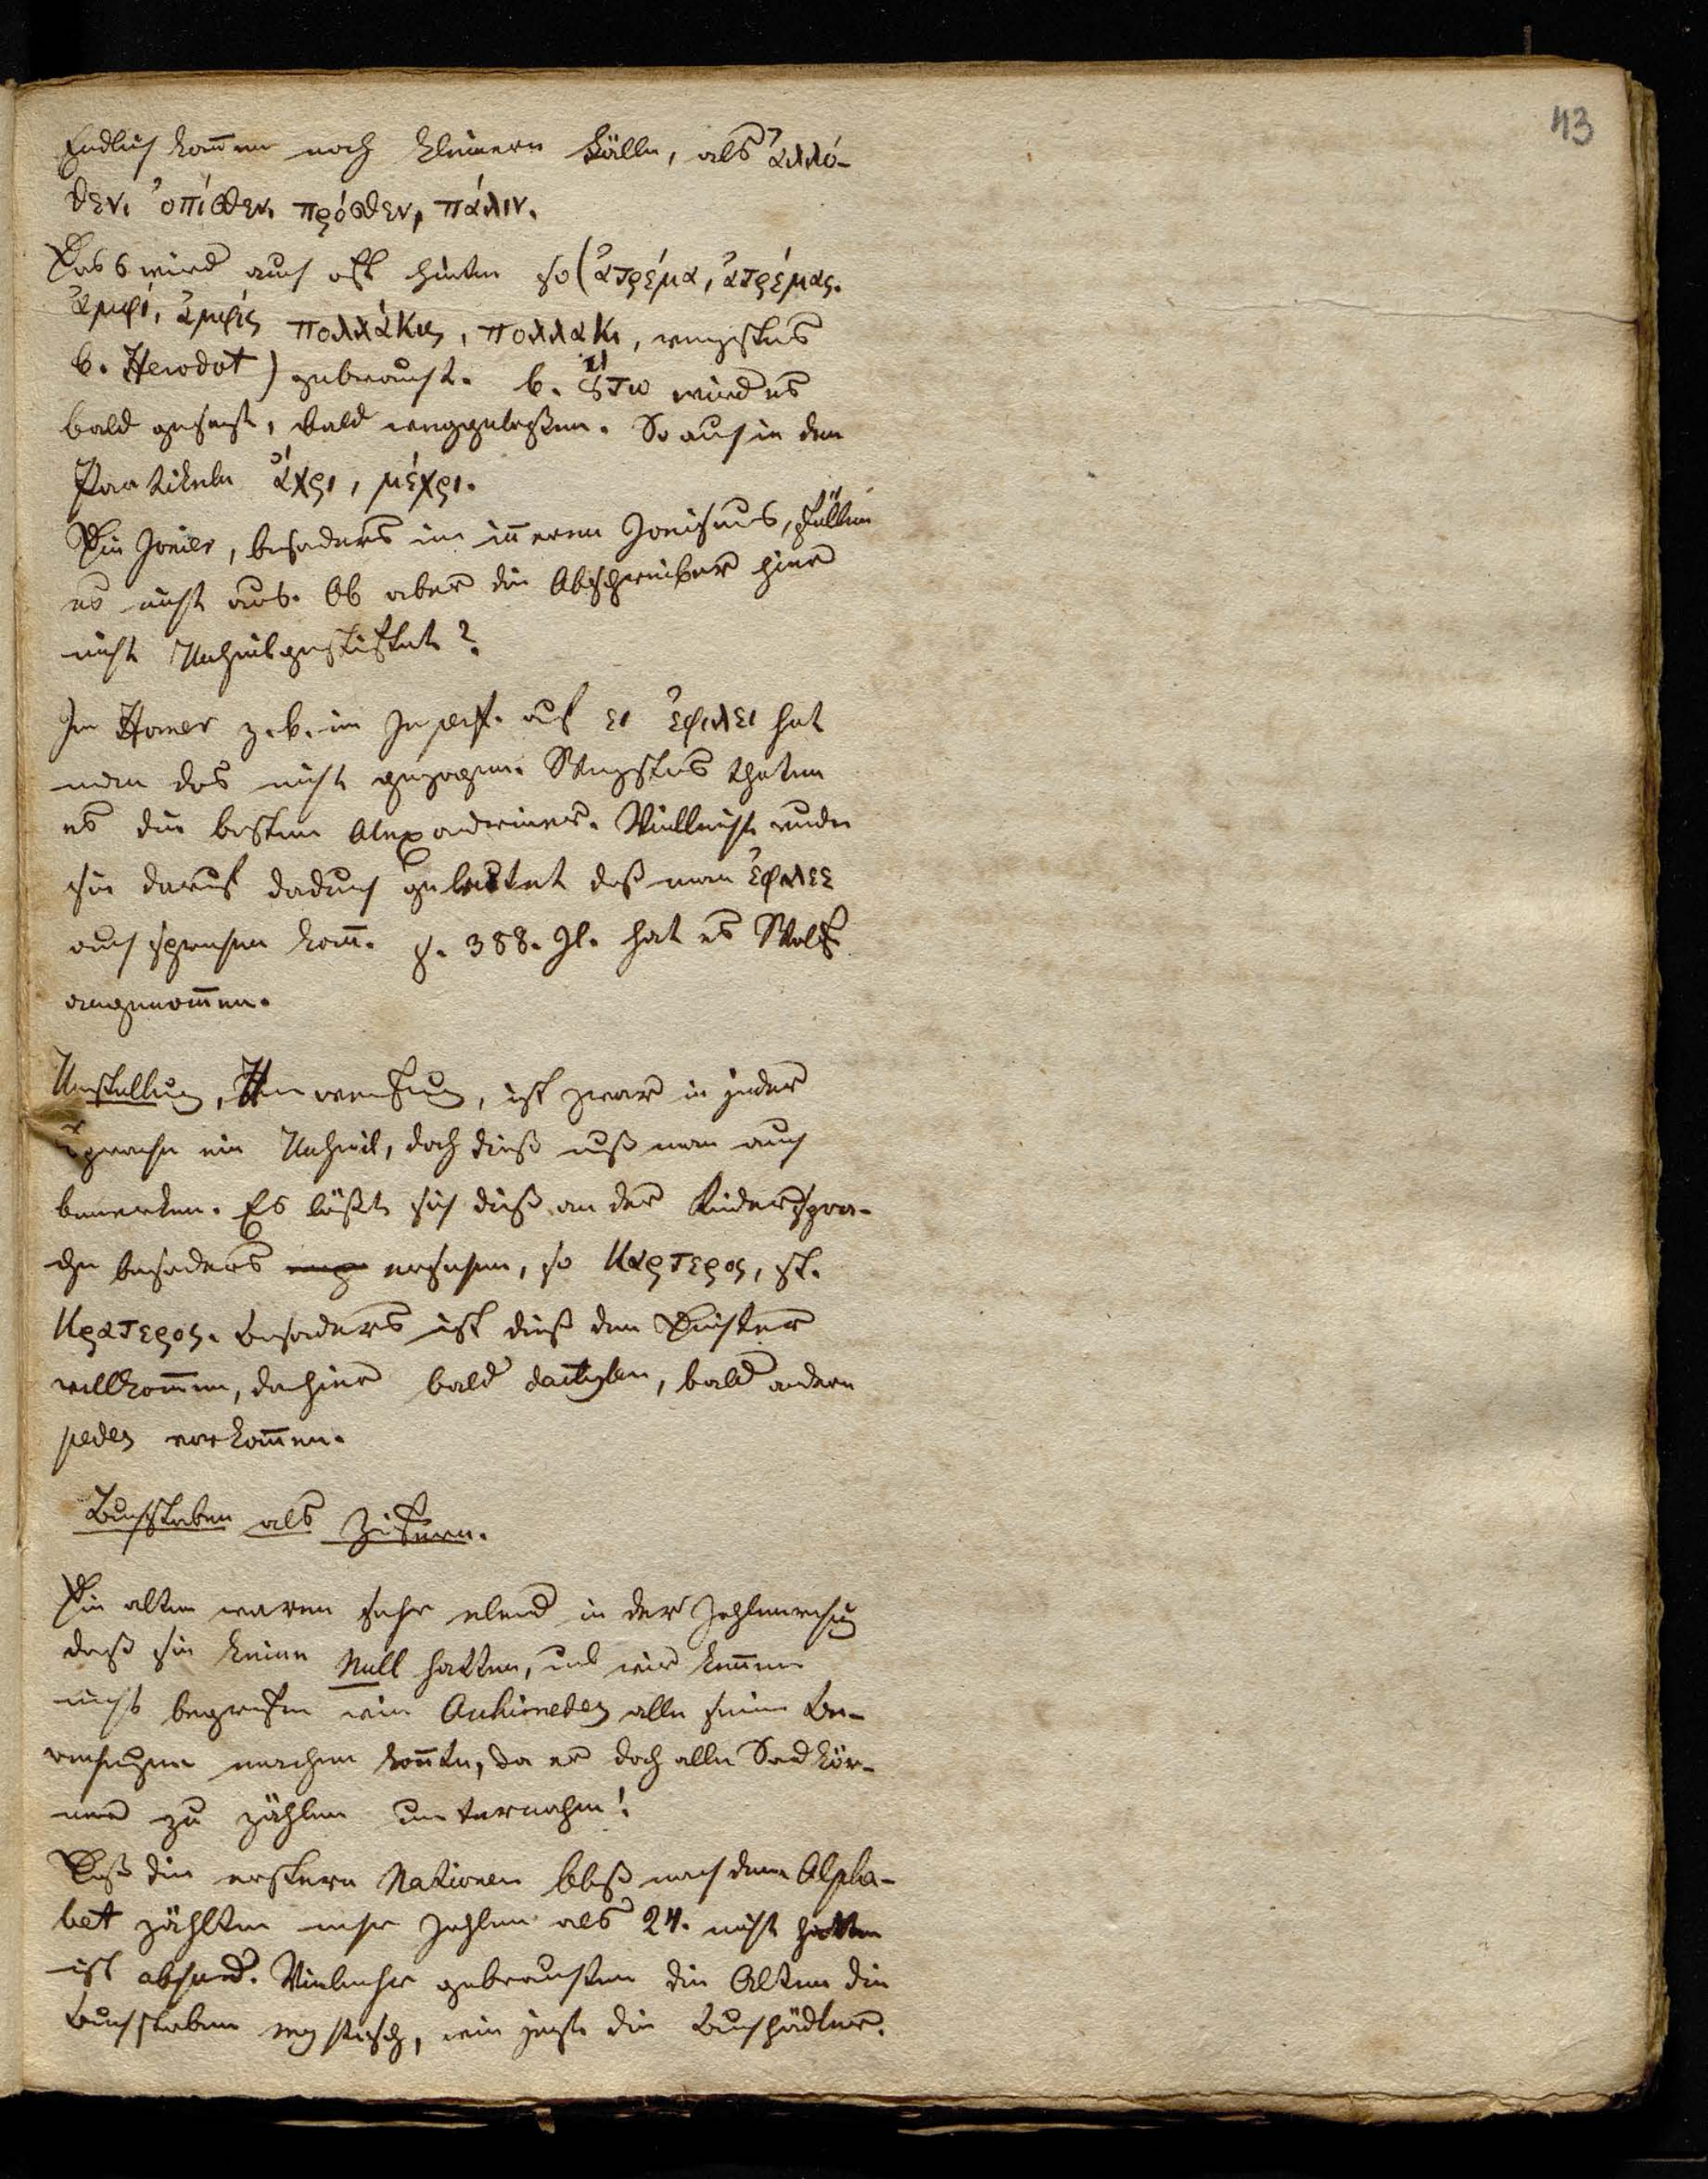 43
Endlich kom̄en noch kleinere Fälle, als ἀλλό-
θεν, ὀπίσθεν, πρόσθεν, πάλιν.
Das s wird auch oft hinten so (ἀτρέμα, ἀτρέμας.
ἀμφί, ἀμφίς πολλάκις, πολλακι, wenigstens
b. Herodot) gebraucht. b. οὕτω wird es
bald gesetzt, bald weggelaßen. So auch in den
Partikeln ἄχρι, μέχρι.
Die Jonier, besonders im in̄eren Jonismus, füllen
es nicht aus. Ob aber die Abschreiber hier
nicht Unheil gestiftet?
Im Homer z. b. im Imperf. auf ει ἐφιλει hat
man das nicht gezogen. Wenigstens thaten
es die besten Alexandriner. Vielleicht wurden
sie darauf dadurch geleitet daß man ἐφιλεε
aussprechen kon̄. γ. 388. Il. hat es Wolf
angenom̄en.
Umstellung, Umwerfung, ist zwar in jeder
Sprache ein Unheil, doch dieß muß man auch
bemerken. Es läßt sich dieß an der Kindersprac-
he besonders ersehen, so Καρτερος, st.
Κρατερος. Besonders ist dieß dem Dichter
willkom̄en, da hier bald dactylen, bald andere
pedes vorkom̄en.
Buchstaben als Zifern.
Die alten waren sehr elend in der Zahlenrechnung
daß sie keine Null hatten, und wir kön̄en
nicht begreifen wie Archimedes alle seine Be-
rechnungen machen kon̄te, da er doch alle Sandkör-
ner zu zählen unternahm!
Daß die ersteren Nationen bloß nach dem Alpha-
bet zählten mehr Zahlen als 24. nicht hatten
ist absurd. Vielmehr gebrauchten die Alten die
Buchstaben mystisch, wie jezt die Buchhändler.